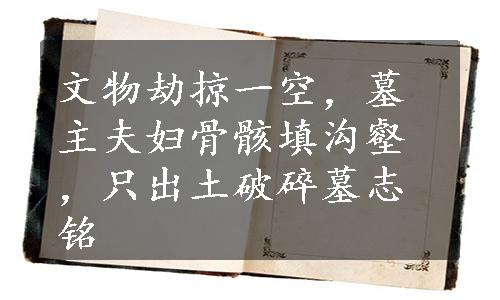 文物劫掠一空，墓
主夫妇骨骸填沟壑
，只出土破碎墓志
铭